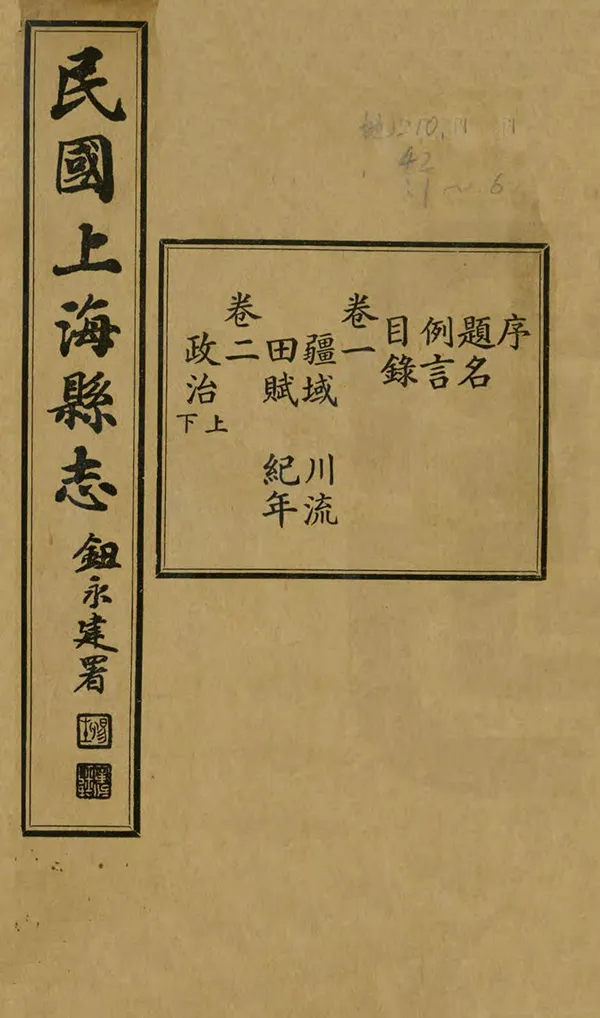 民國上海縣志
鈕永建署
序
題名
例言
目錄
卷一
疆域 川流
田賦 紀年
卷二
政治上下
42